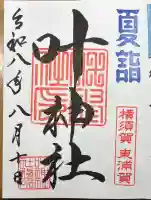 夏詣
叶神社
横須賀 東浦賀
令和八年八月十日